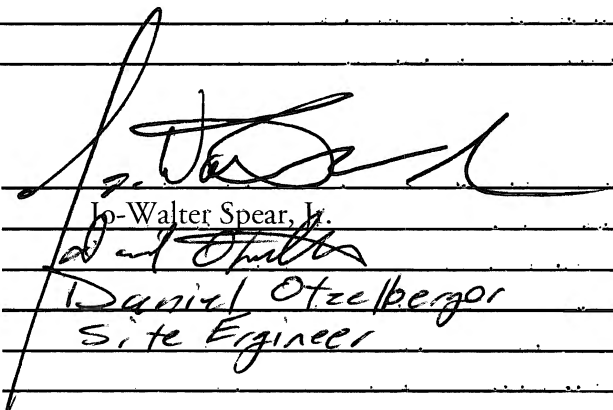 Jo-Walter Spear, Jr.
Daniel Otzelberger
Site Engineer